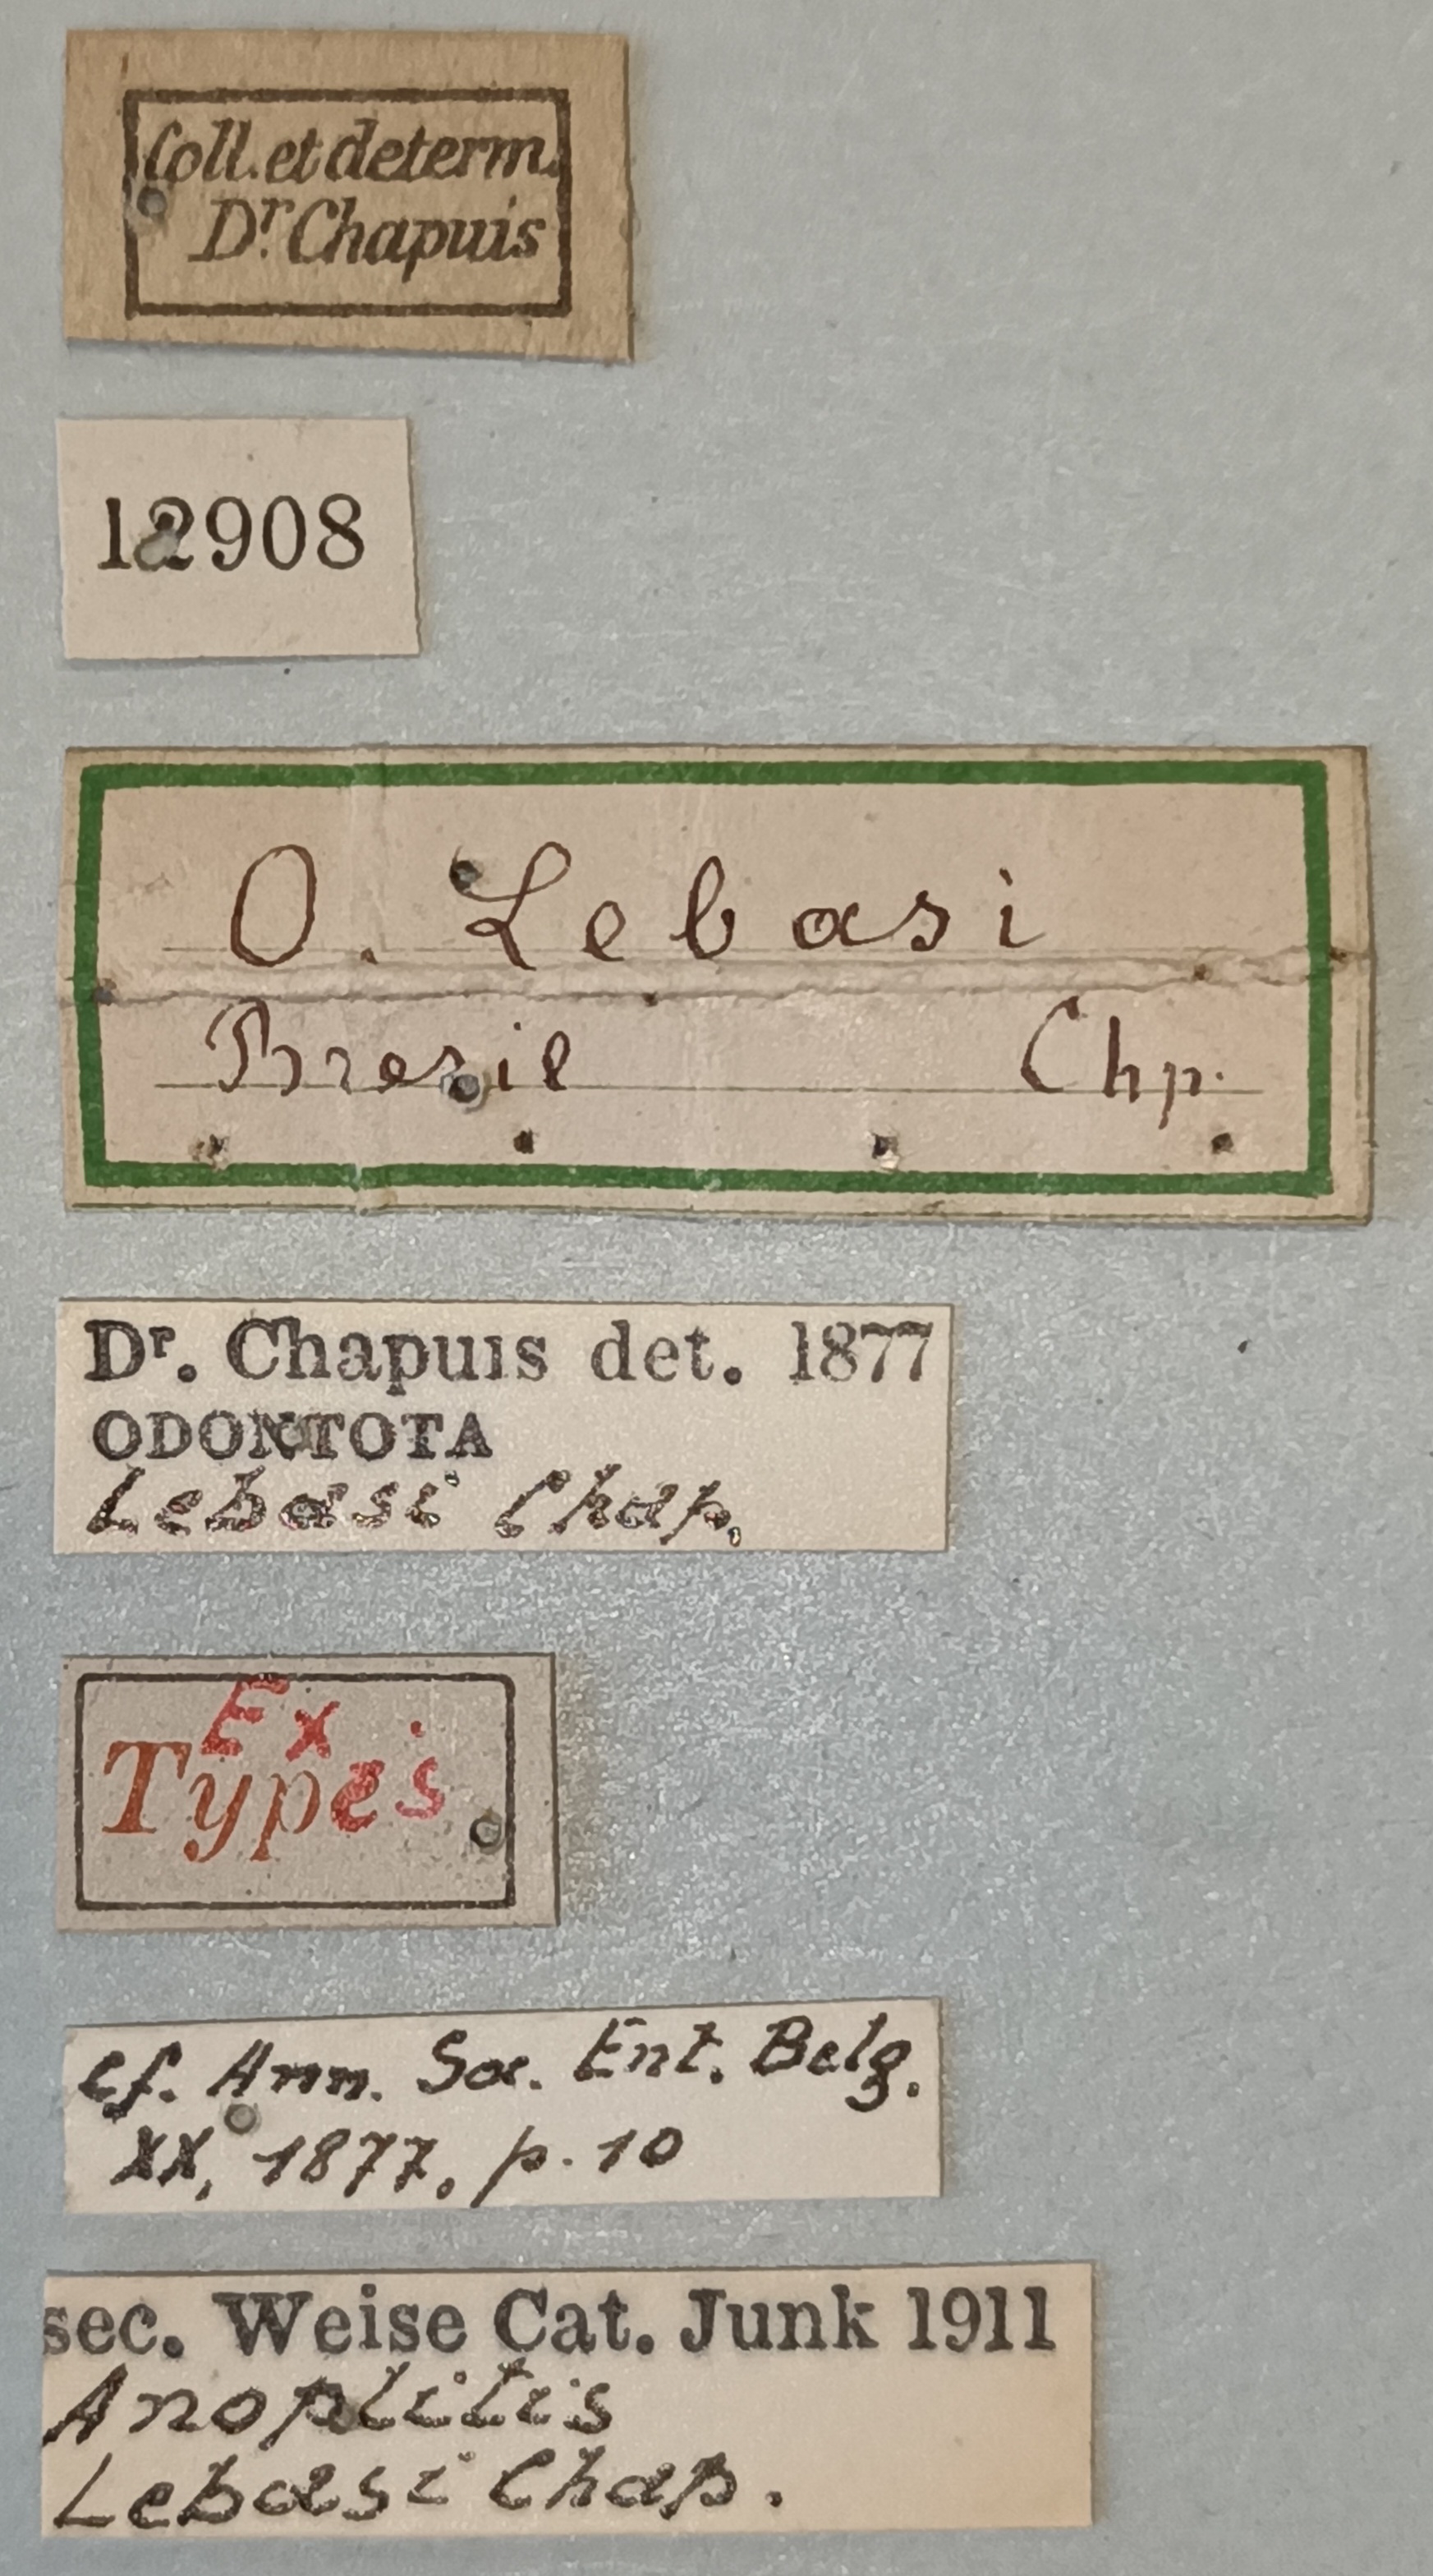 Coll. et determ.
Dr. Chapuis
12908
O. Lebasi
Bresil Chp.
Dr. Chapuis det. 1877
ODONTOTA
Lebasi Chap.
Ex
Typis
cf. Ann. Soc. Ent. Belg.
XX, 1877, p. 10
sec. Weise Cat. Junk 1911
Anoplitis
Lebasi Chap.